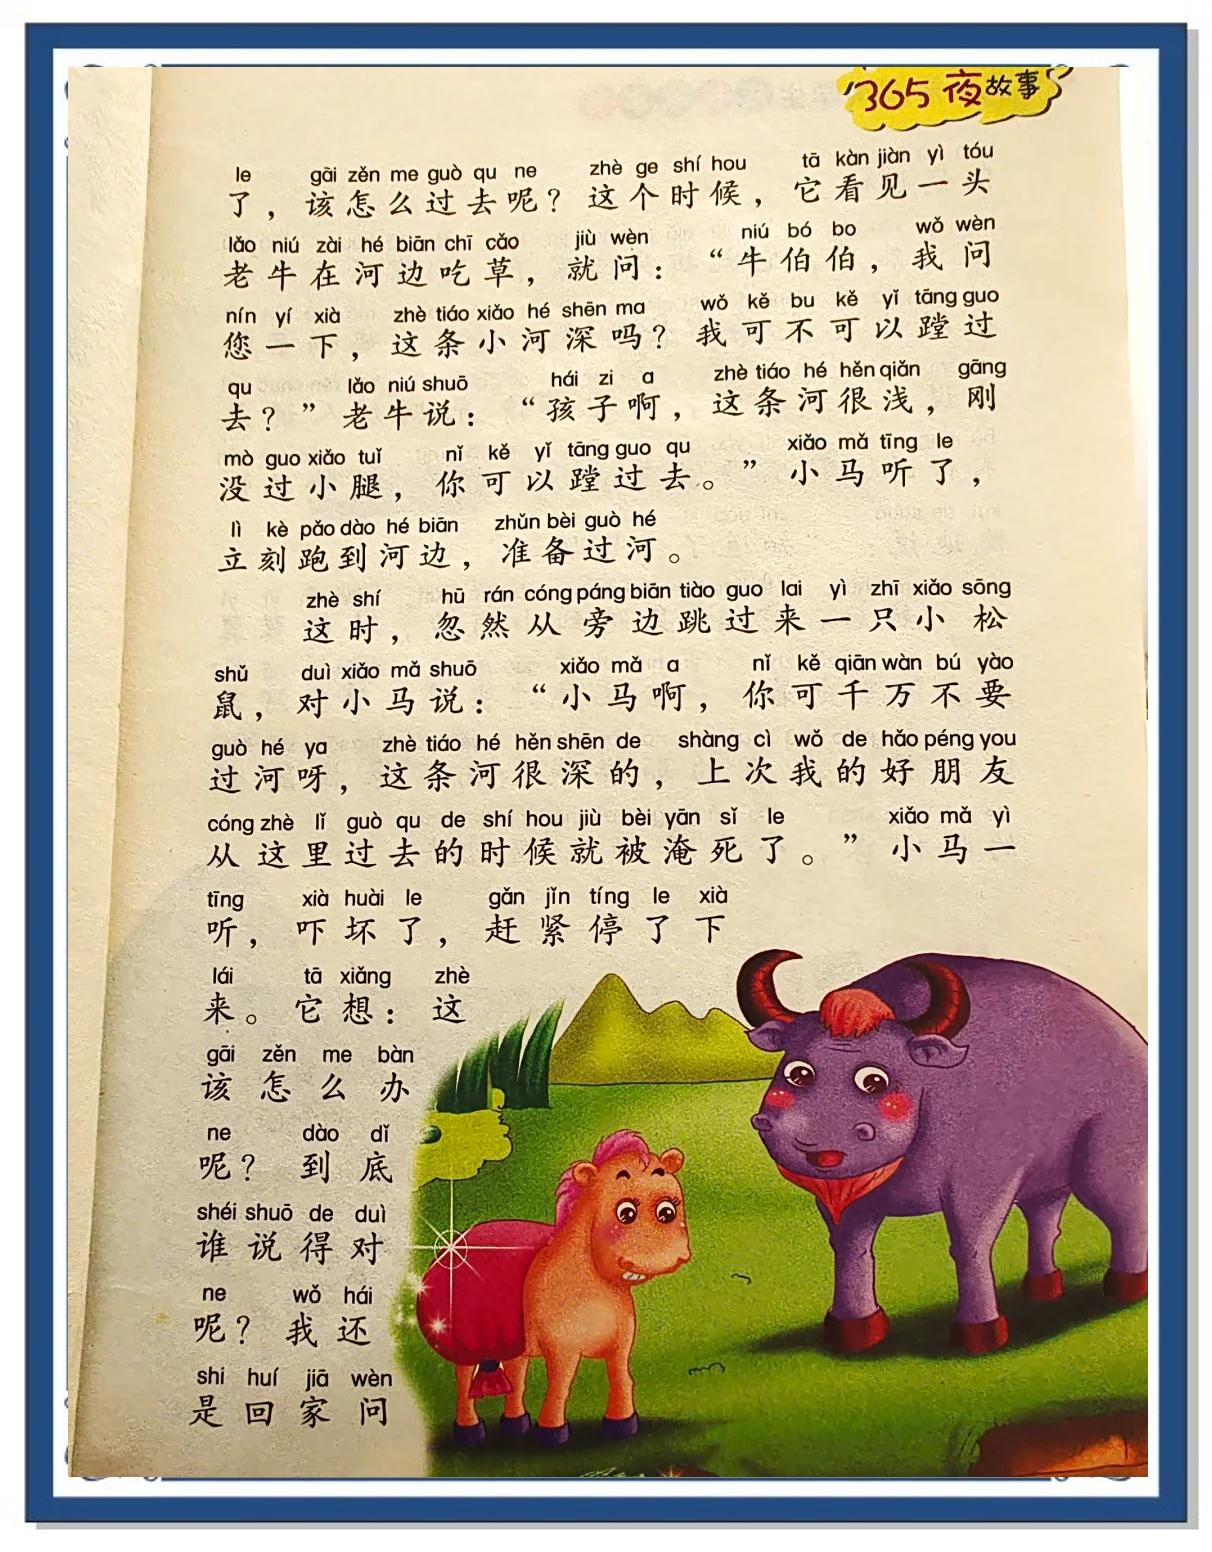 365夜故事
le gāi zěn me guò qu ne zhè ge shí hou tā kàn jiàn yì tóu
了，该怎么过去呢？这个时候，它看见一头
lǎo niú zài hé biān chī cǎo jiù wèn niú bó bo wǒ wèn
老牛在河边吃草，就问：“牛伯伯，我问
nín yí xià zhè tiáo xiǎo hé shēn ma wǒ kě bu kě yǐ tāng guo
您一下，这条小河深吗？我可不可以蹚过
qu lǎo niú shuō hái zi a zhè tiáo hé hěn qiǎn gāng
去？”老牛说：“孩子啊，这条河很浅，刚
mò guo xiǎo tuǐ nǐ kě yǐ tāng guo qu xiǎo mǎ tīng le
没过小腿，你可以蹚过去。”小马听了，
lì kè pǎo dào hé biān zhǔn bèi guò hé
立刻跑到河边，准备过河。
zhè shí hū rán cóng páng biān tiào guo lai yì zhī xiǎo sōng
这时，忽然从旁边跳过来一只小松
shǔ duì xiǎo mǎ shuō xiǎo mǎ a nǐ kě qiān wàn bú yào
鼠，对小马说：“小马啊，你可千万不要
guò hé ya zhè tiáo hé hěn shēn de shàng cì wǒ de hǎo péng you
过河呀，这条河很深的，上次我的好朋友
cóng zhè lǐ guò qu de shí hou jiù bèi yān sǐ le xiǎo mǎ yì
从这里过去的时候就被淹死了。”小马一
tīng xià huài le gǎn jǐn tíng le xià
听，吓坏了，赶紧停了下
lái tā xiǎng zhè
来。它想：这
gāi zěn me bàn
该怎么办
ne dào dǐ
呢？到底
shéi shuō de duì
谁说得对
ne wǒ hái
呢？我还
shi huí jiā wèn
是回家问